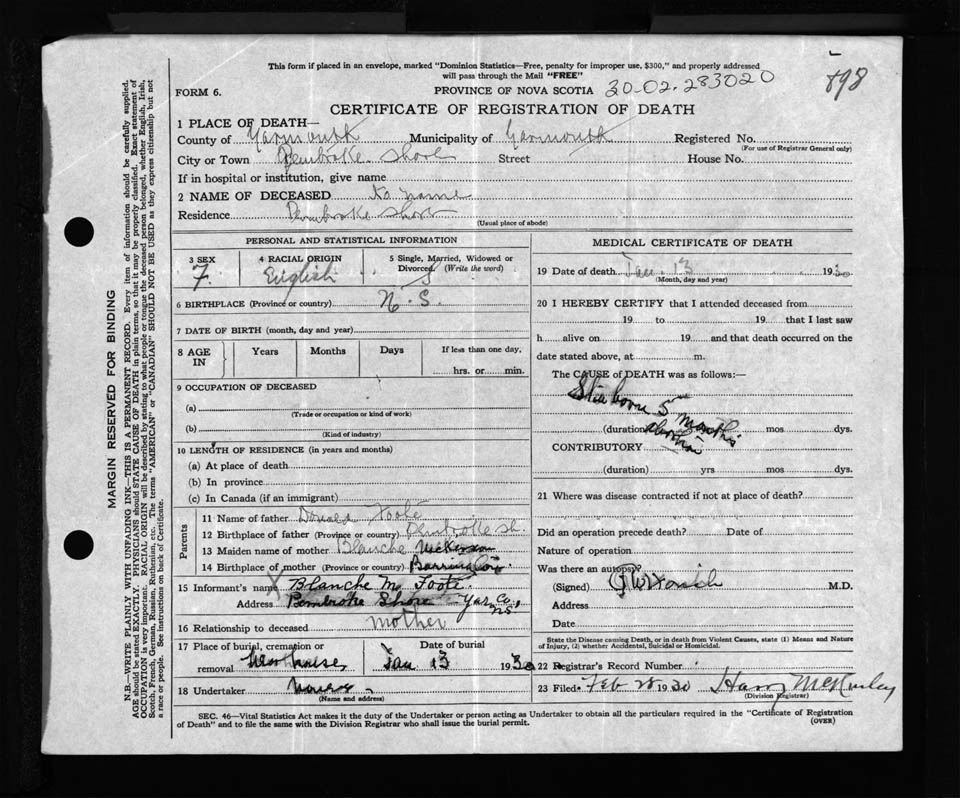 This form if placed in an envelope, marked "Dominion Statistics—Free, penalty for improper use, $300," and properly addressed
will pass through the Mail "FREE"
898
FORM 6.
PROVINCE OF NOVA SCOTIA 30-02-283020
CERTIFICATE OF REGISTRATION OF DEATH
1 PLACE OF DEATH—
County of Yarmouth Municipality of Yarmouth Registered No.
(For use of Registrar General only)
City or Town Pembroke Shore Street House No.
If in hospital or institution, give name
2 NAME OF DECEASED No name
Residence Pembroke Shore
(Usual place of abode)
PERSONAL AND STATISTICAL INFORMATION
3 SEX F. 4 RACIAL ORIGIN English 5 Single, Married, Widowed or
Divorced (Write the word) S
6 BIRTHPLACE (Province or country) N.S.
7 DATE OF BIRTH (month, day and year)
8 AGE IN Years Months Days If less than one day,
hrs. or min.
9 OCCUPATION OF DECEASED
(a)
(Trade or occupation or kind of work)
(b)
(Kind of industry)
10 LENGTH OF RESIDENCE (in years and months)
(a) At place of death
(b) In province
(c) In Canada (if an immigrant)
Parents
11 Name of father Donald Foote
12 Birthplace of father (Province or country) Pembroke Sh.
13 Maiden name of mother Blanche Nickerson
14 Birthplace of mother (Province or country) Barrington
15 Informant's name X Blanche M. Foote
Address Pembroke Shore Yar. Co. N.S.
16 Relationship to deceased mother
17 Place of burial, cremation or Date of burial
removal Jan 13 1930
18 Undertaker
(Name and address)
MEDICAL CERTIFICATE OF DEATH
19 Date of death Jan. 13 1930
(Month, day and year)
20 I HEREBY CERTIFY that I attended deceased from
19 to 19 that I last saw
h alive on 19 and that death occurred on the
date stated above, at m.
The CAUSE of DEATH was as follows:—
Still born 5 months
abortion
(duration) mos dys.
CONTRIBUTORY
(duration) yrs mos dys.
21 Where was disease contracted if not at place of death?
Did an operation precede death? Date of
Nature of operation
Was there an autopsy?
(Signed) M.D.
Address
Date
State the Disease causing Death, or in death from Violent Causes, state (1) Means and Nature
of Injury, (2) whether Accidental, Suicidal or Homicidal.
22 Registrar's Record Number
23 Filed Feb 28 1930 Harry McKinley
(Division Registrar)
SEC. 46—Vital Statistics Act makes it the duty of the Undertaker or person acting as Undertaker to obtain all the particulars required in the "Certificate of Registration
of Death" and to file the same with the Division Registrar who shall issue the burial permit.
(OVER)
MARGIN RESERVED FOR BINDING
N.B.—WRITE PLAINLY WITH UNFADING INK—THIS IS A PERMANENT RECORD. Every item of information should be carefully supplied.
AGE should be stated EXACTLY. PHYSICIANS should STATE CAUSE OF DEATH in plain terms, so that it may be properly classified. Exact statement of
OCCUPATION is very important. RACIAL ORIGIN will be described by stating to what people or tongue the deceased person belonged, whether English, Irish,
Scotch, French, German, Russian, Ruthenian, etc. The terms "AMERICAN" or "CANADIAN" SHOULD NOT BE USED as they express citizenship but not
a race or people. See instructions on back of Certificate.